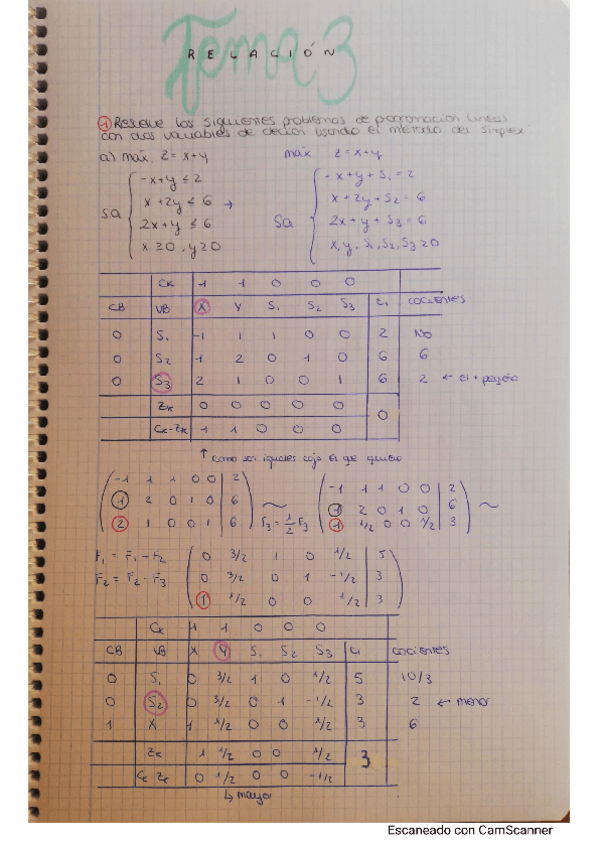 Tema 3
RELACIÓN
1 Resuelve los siguientes problemas de programación lineal
con dos variables de decisión usando el método del simplex:
a) máx. Z = x+y máx z = x+y
SA { -x+y ≤ 2 → SA { -x+y+S₁ = 2
x+2y ≤ 6 x+2y+S₂ = 6
2x+y ≤ 6 2x+y+S₃ = 6
x ≥ 0, y ≥ 0 x, y, S₁, S₂, S₃ ≥ 0
CK 1 1 0 0 0
CB VB X Y S₁ S₂ S₃ cocientes
0 S₁ -1 1 1 0 0 2 No
0 S₂ 1 2 0 1 0 6 6
0 S₃ 2 1 0 0 1 6 2 ← el + pequeño
ZK 0 0 0 0 0 0
CK-ZK 1 1 0 0 0
↑ como son iguales cojo el que quiero
-1 1 1 0 0 | 2
1 2 0 1 0 | 6
2 1 0 0 1 | 6
~ F₃ = 1/2 F₃
-1 1 1 0 0 | 2
1 2 0 1 0 | 6
1 1/2 0 0 1/2 | 3
~
F₂ = F₂ - F₃
0 3/2 1 0 1/2 | 5
0 3/2 0 1 -1/2 | 3
1 1/2 0 0 1/2 | 3
CK 1 1 0 0 0
CB VB X Y S₁ S₂ S₃ cocientes
0 S₁ 0 3/2 1 0 1/2 5 10/3
0 S₂ 0 3/2 0 1 -1/2 3 2 ← menor
1 X 1 1/2 0 0 1/2 3 6
ZK 1 1/2 0 0 1/2 3
CK-ZK 0 1/2 0 0 -1/2
↳ mayor
Escaneado con CamScanner